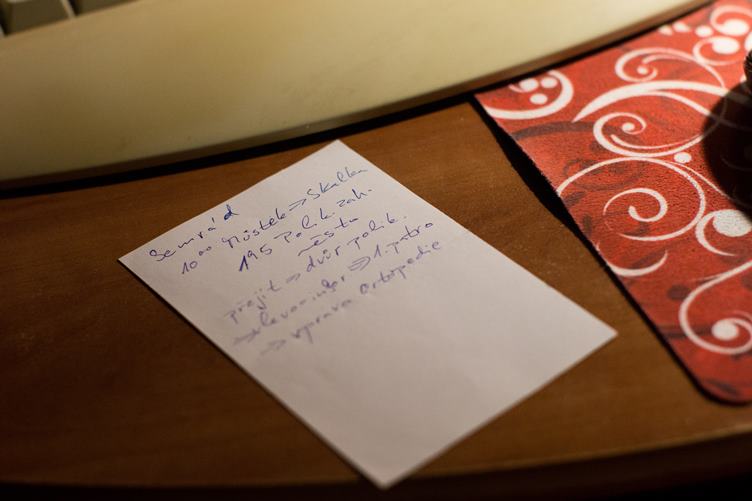 Semrád
10⁰⁰ Můstek → Skalka
195 Polik. zah.
města
přejít → dvůr polik.
→ vlevo → 1. patro
→ vpravo ortopedie